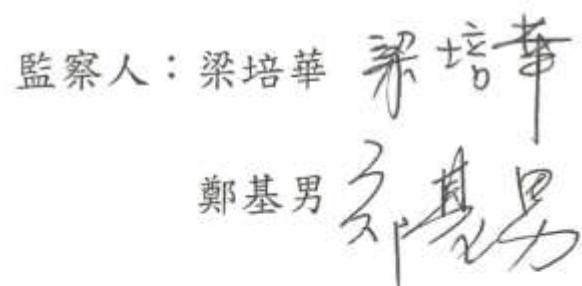 監察人：梁培華 梁培華
鄭基男 鄭基男